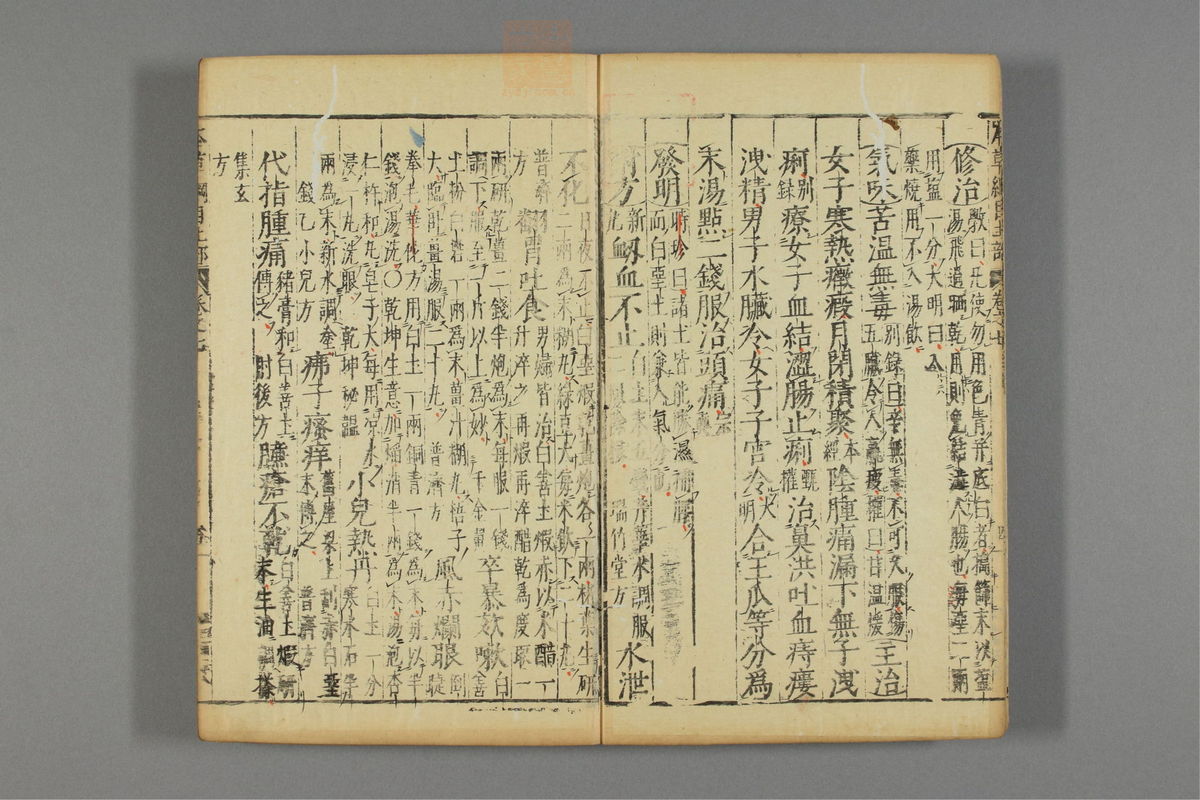 修治 斅曰凡使勿用色青并底白者擣篩末
湯飛過晒乾用則免結澁人腸也每堊二兩
用鹽一分大明曰入
藥燒用不入湯飲
氣味苦溫無毒 別錄曰辛無毒不可久服傷
五臟令人羸瘦權曰甘溫煖 主治
女子寒熱癥瘕月閉積聚 本經 陰腫痛漏下無子洩
痢 別錄 療女子血結澀腸止痢 甄權 治鼻洪吐血痔瘻
洩精男子水臟冷女子子宮冷 大明 合王瓜等分爲
末湯點二錢服治頭痛
發明 時珍曰諸土皆能勝濕補脾
而白堊土則兼入氣分也
附方 新九 衄血不止 白土末五錢井華水調服
瑞竹堂方 水泄
不化 日夜不止白堊煅乾薑炮各一兩楮葉生研
二兩爲末糊丸綠豆大每米飲下二十丸
普濟方 翻胃吐食 男婦皆治白善土煅赤以米醋一
升淬之再煅再淬醋乾爲度取一
兩研乾薑二錢半炮爲末每服一錢
調下服至一斤以上爲妙 千金翼 卒暴欬嗽 白善
土粉白礬一兩爲末薑汁糊丸梧子
大臨臥薑湯服二十丸 普濟方 風赤爛眼 睫
拳半華佗方用白土一兩銅青一錢爲末每以半
錢泡湯洗○乾坤生意加焰消半兩爲末湯泡杏
仁杵和丸皂子大每用凉水
浸一丸洗眼 乾坤秘韞 小兒熱丹 白土一分
寒水石半
兩爲末新水調塗
錢乙小兒方 痱子瘙痒 舊屋梁上刮赤白堊
末傅之 普濟方
代指腫痛 猪膏和白善土
傅之 肘後方 臁瘡不乾 白善土煅研
末生油調搽
集玄
方